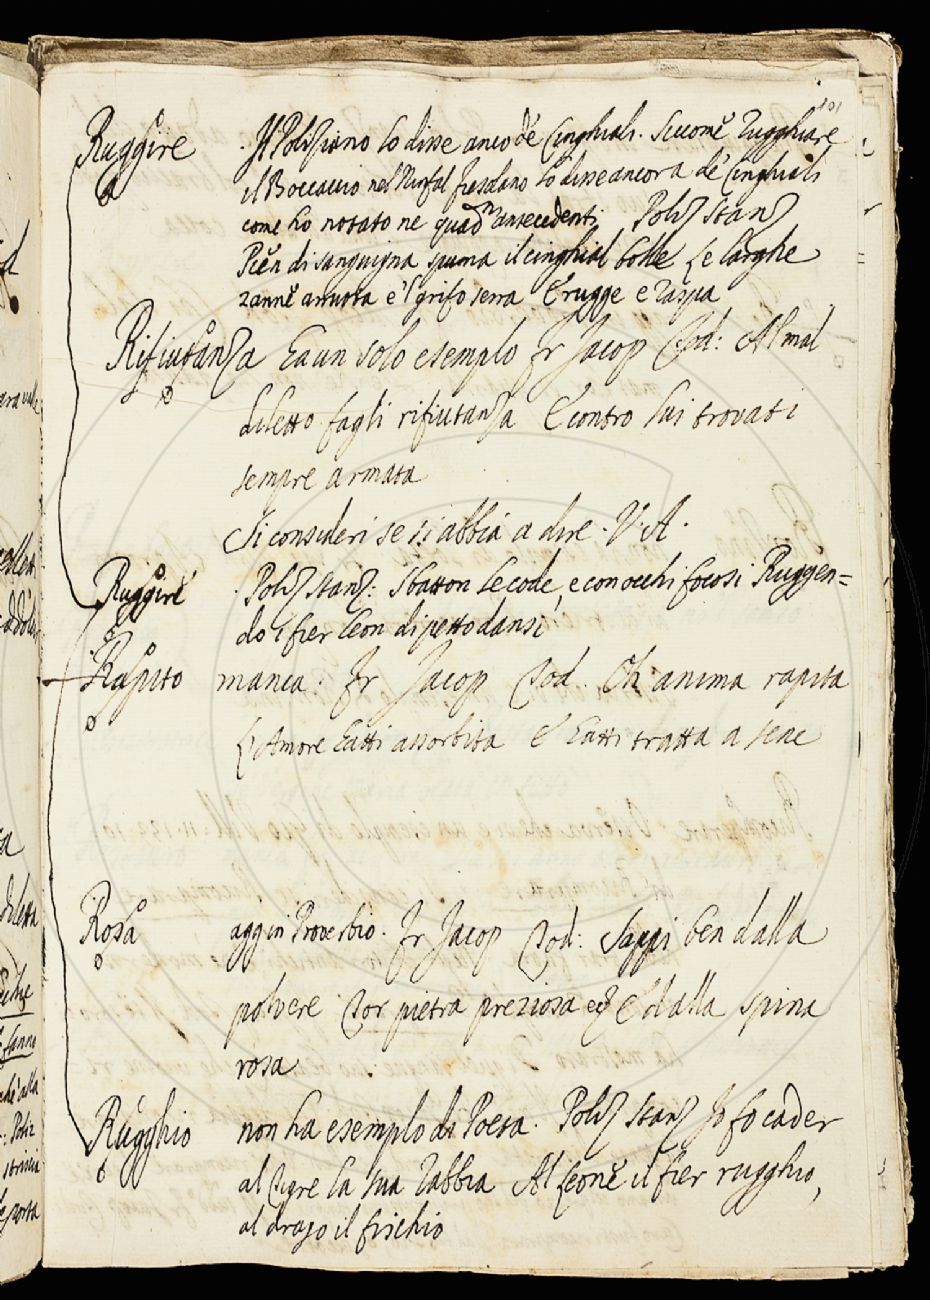 101
Ruggire . Il Poliziano lo disse anco de Cinghiali. Siccome Rugghiare
il Boccaccio nel Ninfal fiesolano lo disse ancora de' Cinghiali
come ho notato ne quad.ni antecedenti Poliz Stanz
Pien di sanguigna spuma il cinghial bolle Le larghe
zanne arruota e 'l grifo serra E rugge e raspa
Rifiutanza Ha un solo esempio Fr Jacop Tod: Al mal
diletto fagli rifiutanza E contro lui trovati
sempre armata
Si consideri se si abbia a dire. V. A.
Ruggire . Poliz Stanz: Sbatton le code, e con occhi focosi Ruggen=
do i fier leon di petto dansi
Rapito manca. Fr Jacop Tod. Oh anima rapita
L'Amore hatti assorbita E hatti tratta a sene
Rosa agg in Proverbio. Fr Jacop Tod: Sappi ben dalla
polvere Tor pietra preziosa ec E dalla spina
rosa
Rugghio non ha esempio di Poeta. Poliz Stanz Io fo cader
al Tigre la sua rabbia Al leone il fier rugghio,
al drago il fischio